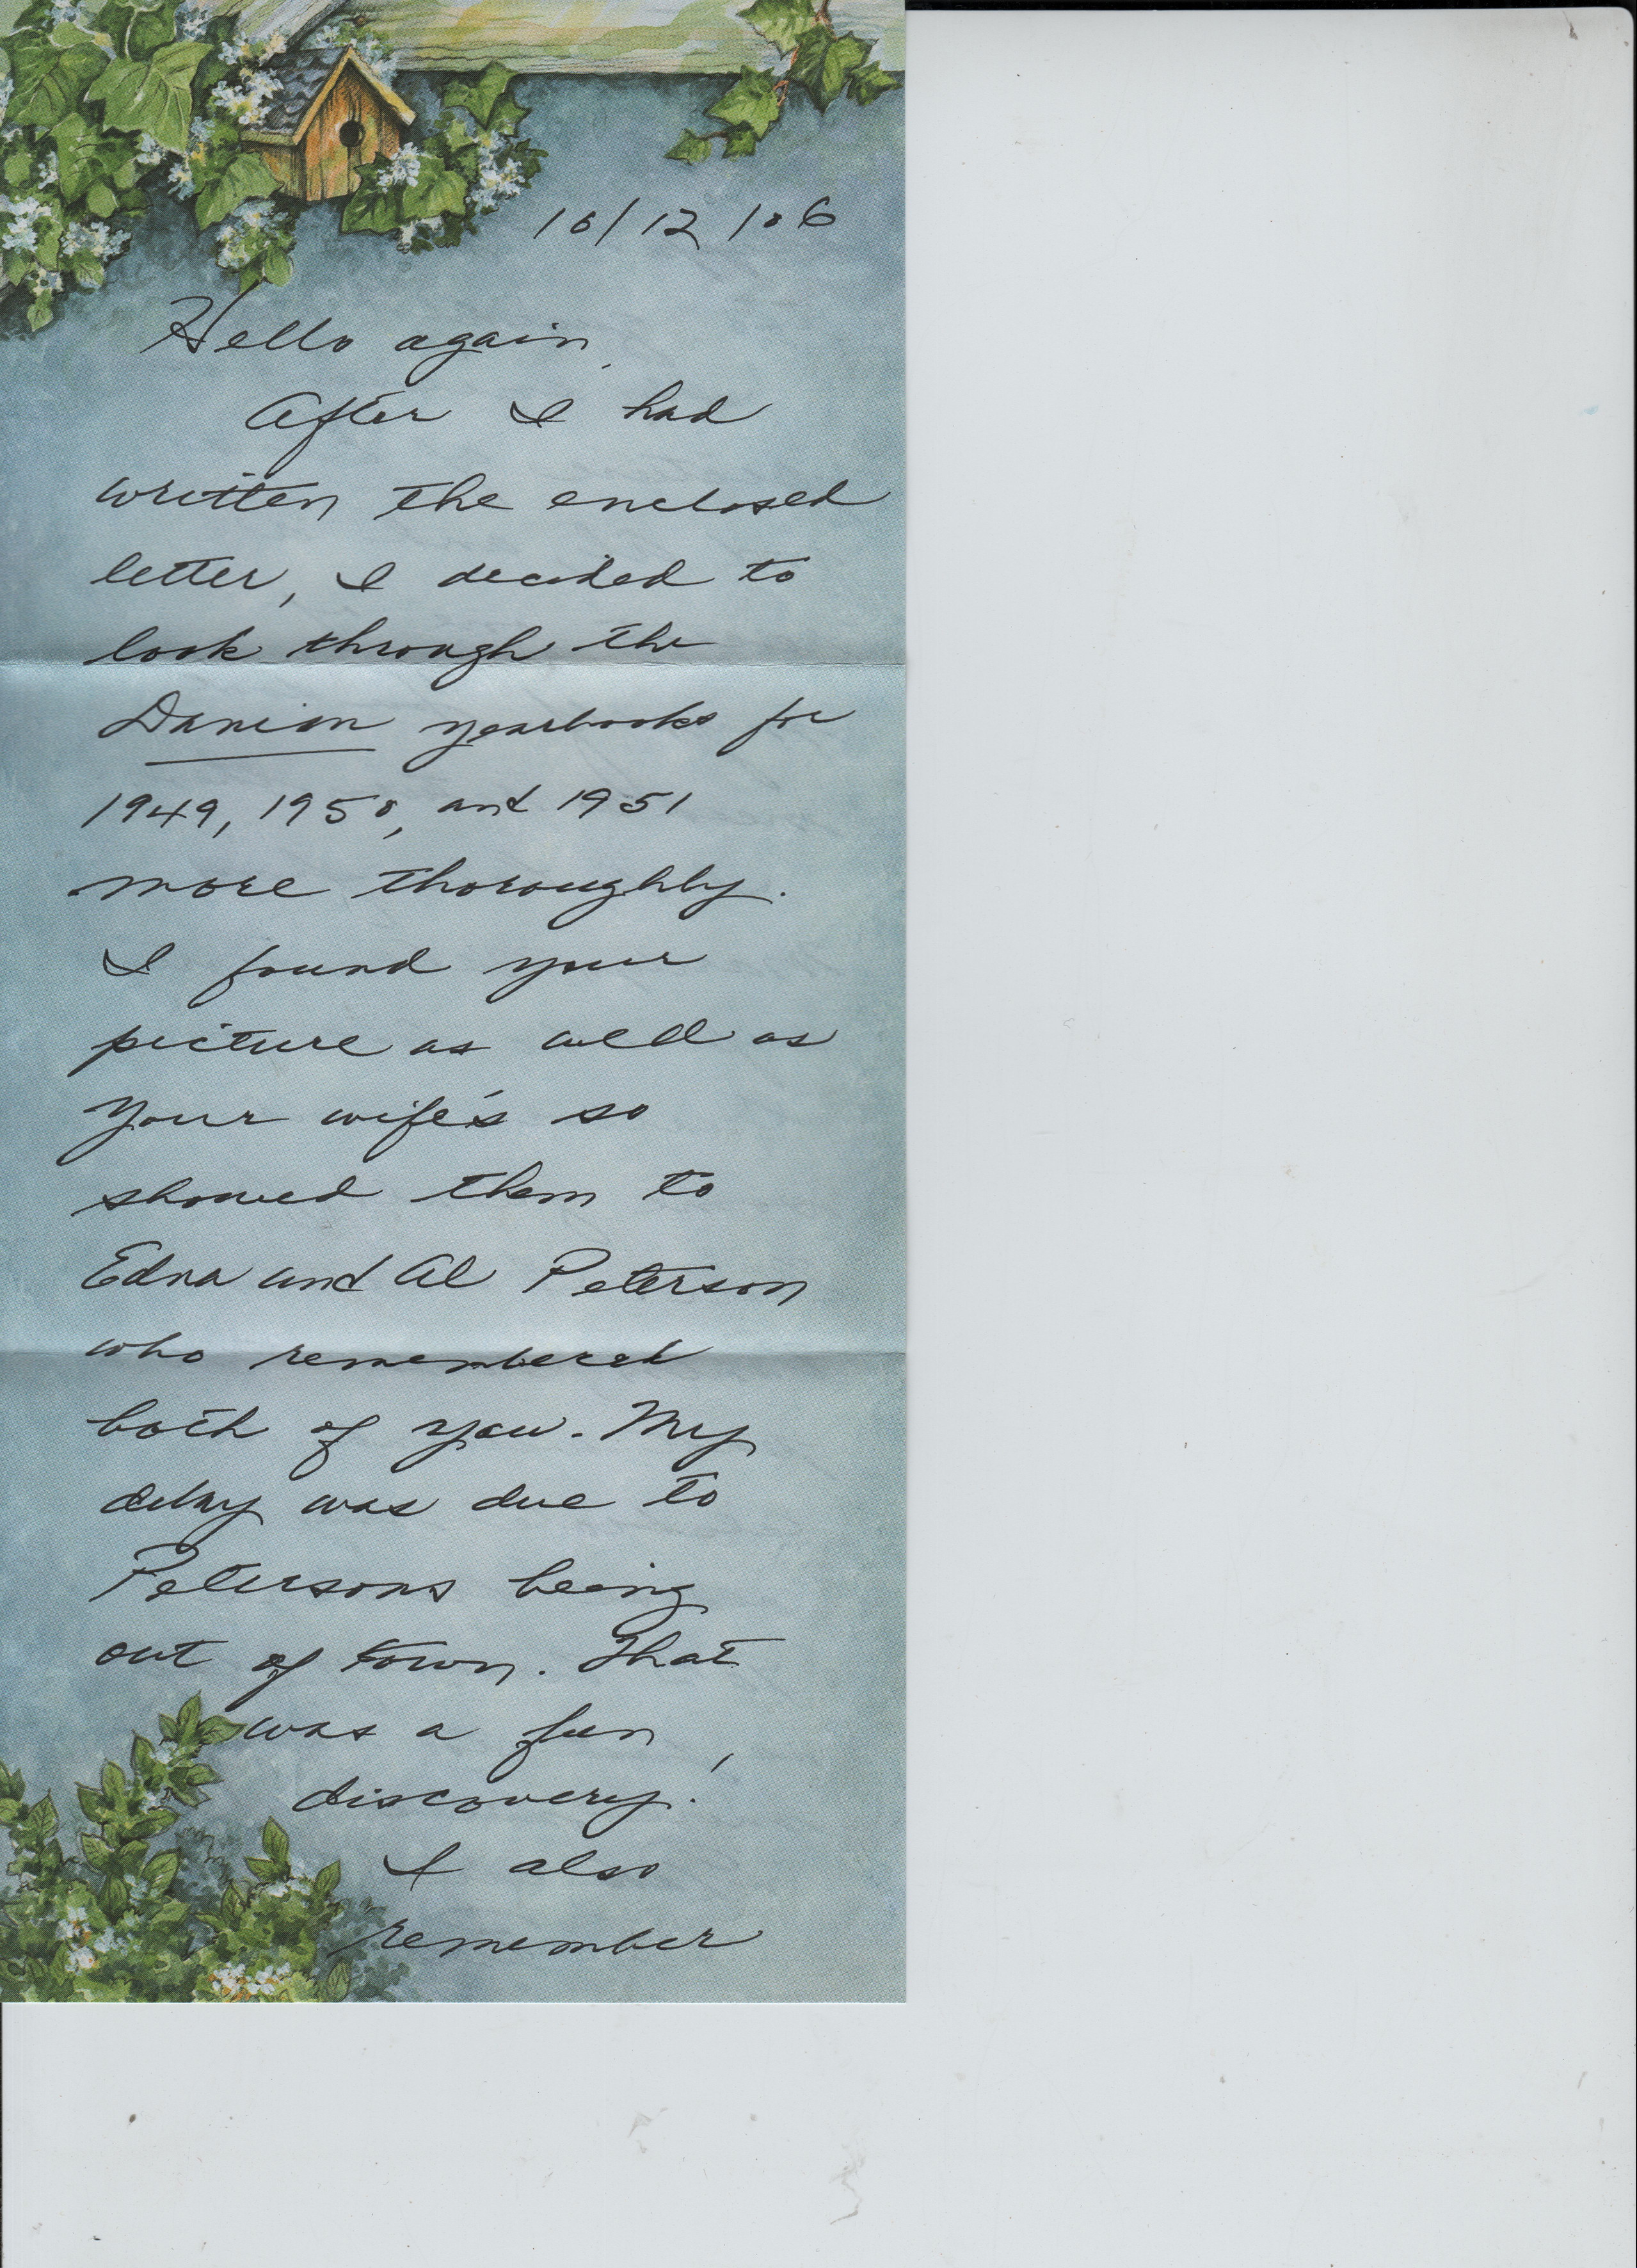 10/12/06
Hello again,
After I had
written the enclosed
letter, I decided to
look through the
Danion yearbooks for
1949, 1950, and 1951
more thoroughly.
I found your
picture as well as
your wife's so
showed them to
Edna and Al Peterson
who remembered
both of you. My
delay was due to
Petersons being
out of town. That
was a fun
discovery!
I also
remember